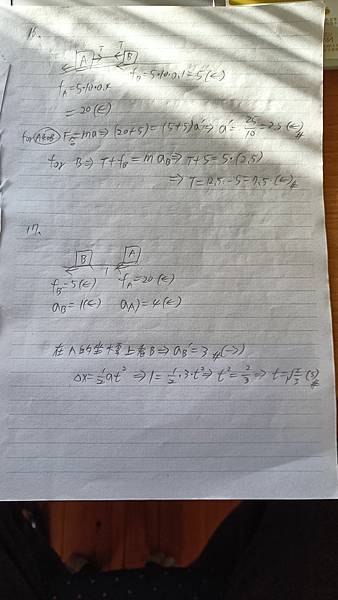 16.
T T
A B
f_B=5·10·0.1=5(←)
f_A=5·10·0.4
=20(←)
for A&B F=ma⇒(20+5)=(5+5)a'⇒a'=25/10=2.5(←)#
for B⇒T+f_B=ma_B⇒T+5=5·(2.5)
⇒T=12.5-5=7.5(←)#
17.
B A
1
f_B=5(←) f_A=20(←)
a_B=1(←) a_A=4(←)
在A的坐標上看B⇒a_B'=3#(→)
Δx=½at²⇒1=½·3·t²⇒t²=2/3⇒t=√2/3(s)#